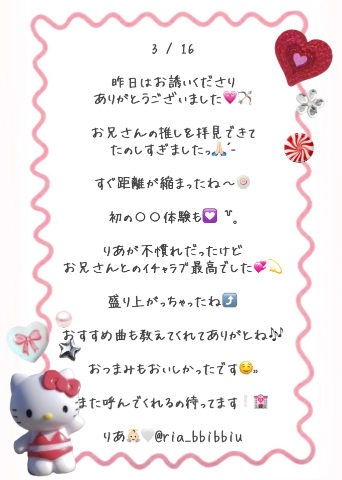 3 / 16
昨日はお誘いくださり
ありがとうございました💗🏹
お兄さんの推しを拝見できて
たのしすぎましたっ🙏🏻´-
すぐ距離が縮まったね〜🍥
初の〇〇体験も💟 ꒷꒦。
りあが不慣れだったけど
お兄さんとのイチャラブ最高でした💞💫
盛り上がっちゃったね⤴️
おすすめ曲も教えてくれてありがとね🎶
おつまみもおいしかったです☺️»
また呼んでくれるの待ってます❕🏩
りあ👶🏻🤍@ria_bbibbiu